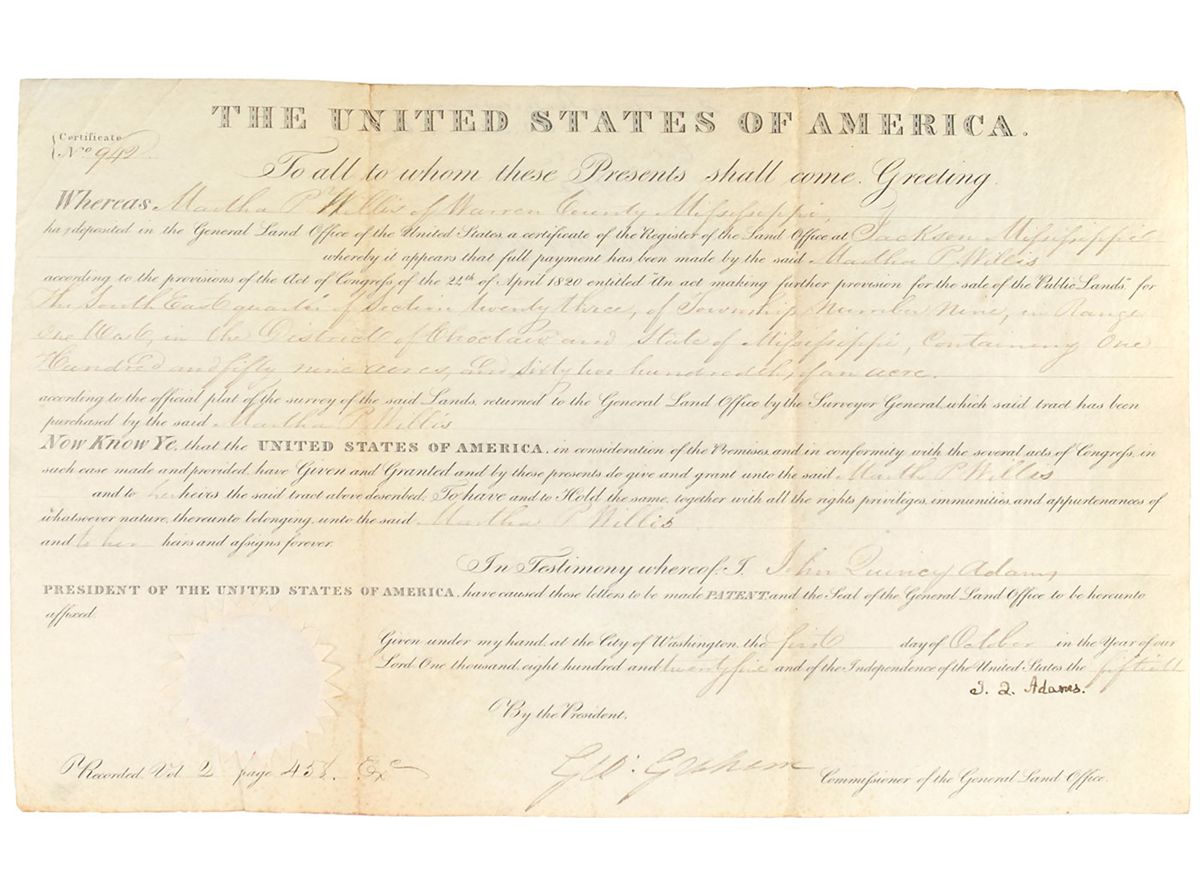 THE UNITED STATES OF AMERICA.
Certificate
No 942
To all to whom these Presents shall come, Greeting.
Whereas Martha P. Willis of Warren County Mississippi,
has deposited in the General Land Office of the United States, a certificate of the Register of the Land Office at Jackson Mississippi
whereby it appears that full payment has been made by the said Martha P. Willis
according to the provisions of the Act of Congress of the 24th of April 1820 entitled "An act making further provision for the sale of the Public Lands," for
The South East quarter of Section twenty three, of Township Number Nine, in Range
One West, in the District of Choctaw and State of Mississippi, Containing One
Hundred and fifty nine acres, and sixty two hundredths of an acre.
according to the official plat of the survey of the said Lands, returned to the General Land Office by the Surveyor General, which said tract has been
purchased by the said Martha P. Willis
Now Know Ye, that the UNITED STATES OF AMERICA, in consideration of the Premises, and in conformity with the several acts of Congress, in
such case made and provided, have Given and Granted and by these presents do give and grant unto the said Martha P Willis
and to her heirs the said tract above described; To have and to Hold the same, together with all the rights privileges, immunities, and appurtenances of
whatsoever nature, thereunto belonging, unto the said Martha P. Willis
and to her heirs and assigns forever.
In Testimony whereof, I, John Quincy Adams
PRESIDENT OF THE UNITED STATES OF AMERICA, have caused these letters to be made PATENT and the Seal of the General Land Office to be hereunto
affixed.
Given under my hand, at the City of Washington, the first day of October in the Year of our
Lord One thousand, eight hundred and twenty five and of the Independence of the United States the fiftieth
J. Q. Adams.
By the President.
Recorded Vol 2 page 458. Exd
Geo: Graham Commissioner of the General Land Office.